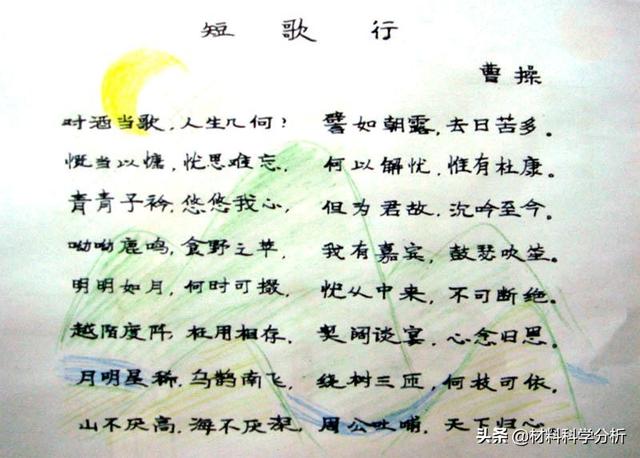 短歌行
曹操
对酒当歌，人生几何？ 譬如朝露，去日苦多。
慨当以慷，忧思难忘， 何以解忧，惟有杜康。
青青子衿，悠悠我心， 但为君故，沉吟至今。
呦呦鹿鸣，食野之苹， 我有嘉宾，鼓瑟吹笙。
明明如月，何时可掇， 忧从中来，不可断绝。
越陌度阡，枉用相存， 契阔谈宴，心念旧恩。
月明星稀，乌鹊南飞， 绕树三匝，何枝可依。
山不厌高，海不厌深， 周公吐哺，天下归心
头条 @材料科学分析